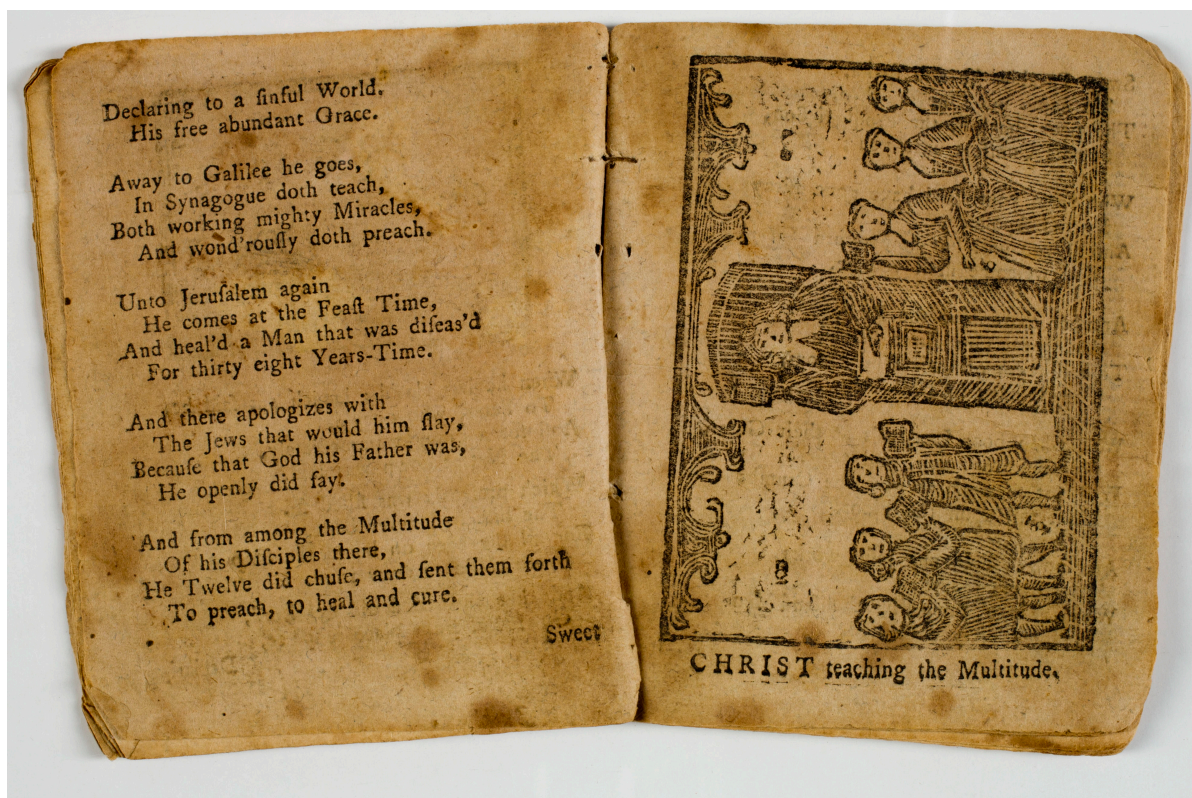 Declaring to a ſinful World.
His free abundant Grace.
Away to Galilee he goes,
In Synagogue doth teach,
Both working mighty Miracles,
And wond'rouſly doth preach.
Unto Jeruſalem again
He comes at the Feaſt Time,
And heal'd a Man that was diſeas'd
For thirty eight Years-Time.
And there apologizes with
The Jews that would him ſlay,
Becauſe that God his Father was,
He openly did ſay.
And from among the Multitude
Of his Diſciples there,
He Twelve did chuſe, and ſent them forth
To preach, to heal and cure.
Sweet
CHRIST teaching the Multitude.